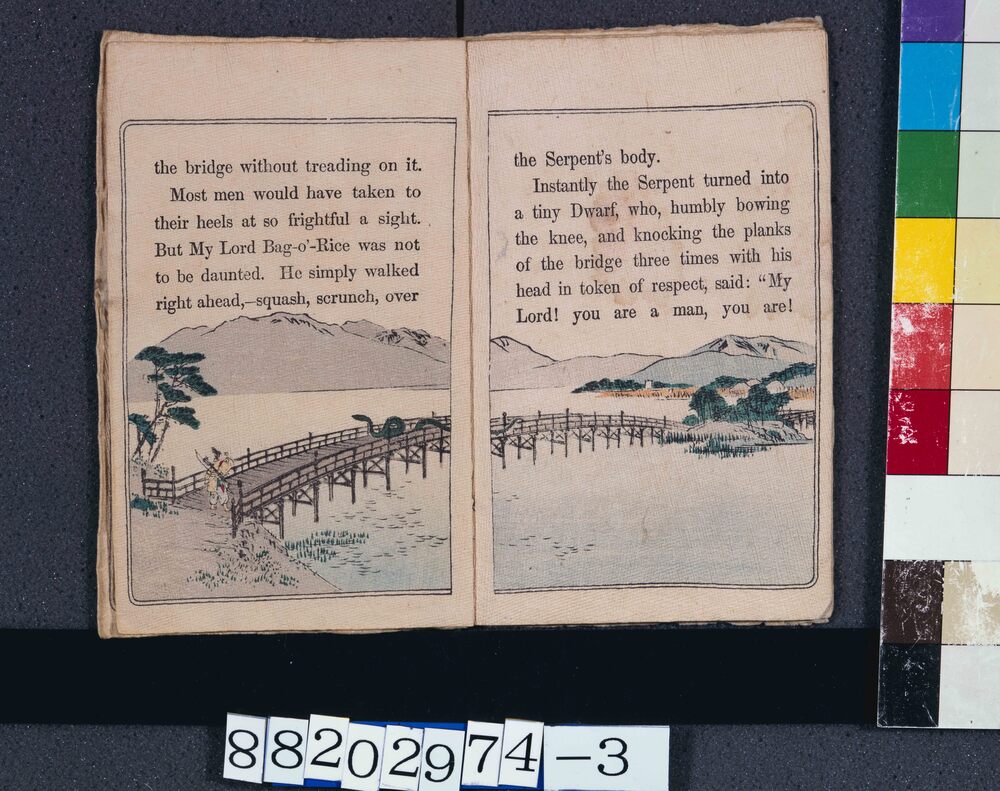 the bridge without treading on it.
Most men would have taken to
their heels at so frightful a sight.
But My Lord Bag-o'-Rice was not
to be daunted. He simply walked
right ahead,—squash, scrunch, over
the Serpent's body.
Instantly the Serpent turned into
a tiny Dwarf, who, humbly bowing
the knee, and knocking the planks
of the bridge three times with his
head in token of respect, said: “My
Lord! you are a man, you are!
88202974-3